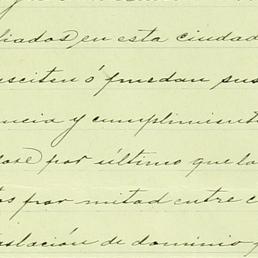 liados en esta ciudad
usciten ó puedan sus
encia y cumplimient
dose por último que la
os por mitad entre c
aslación de dominio y